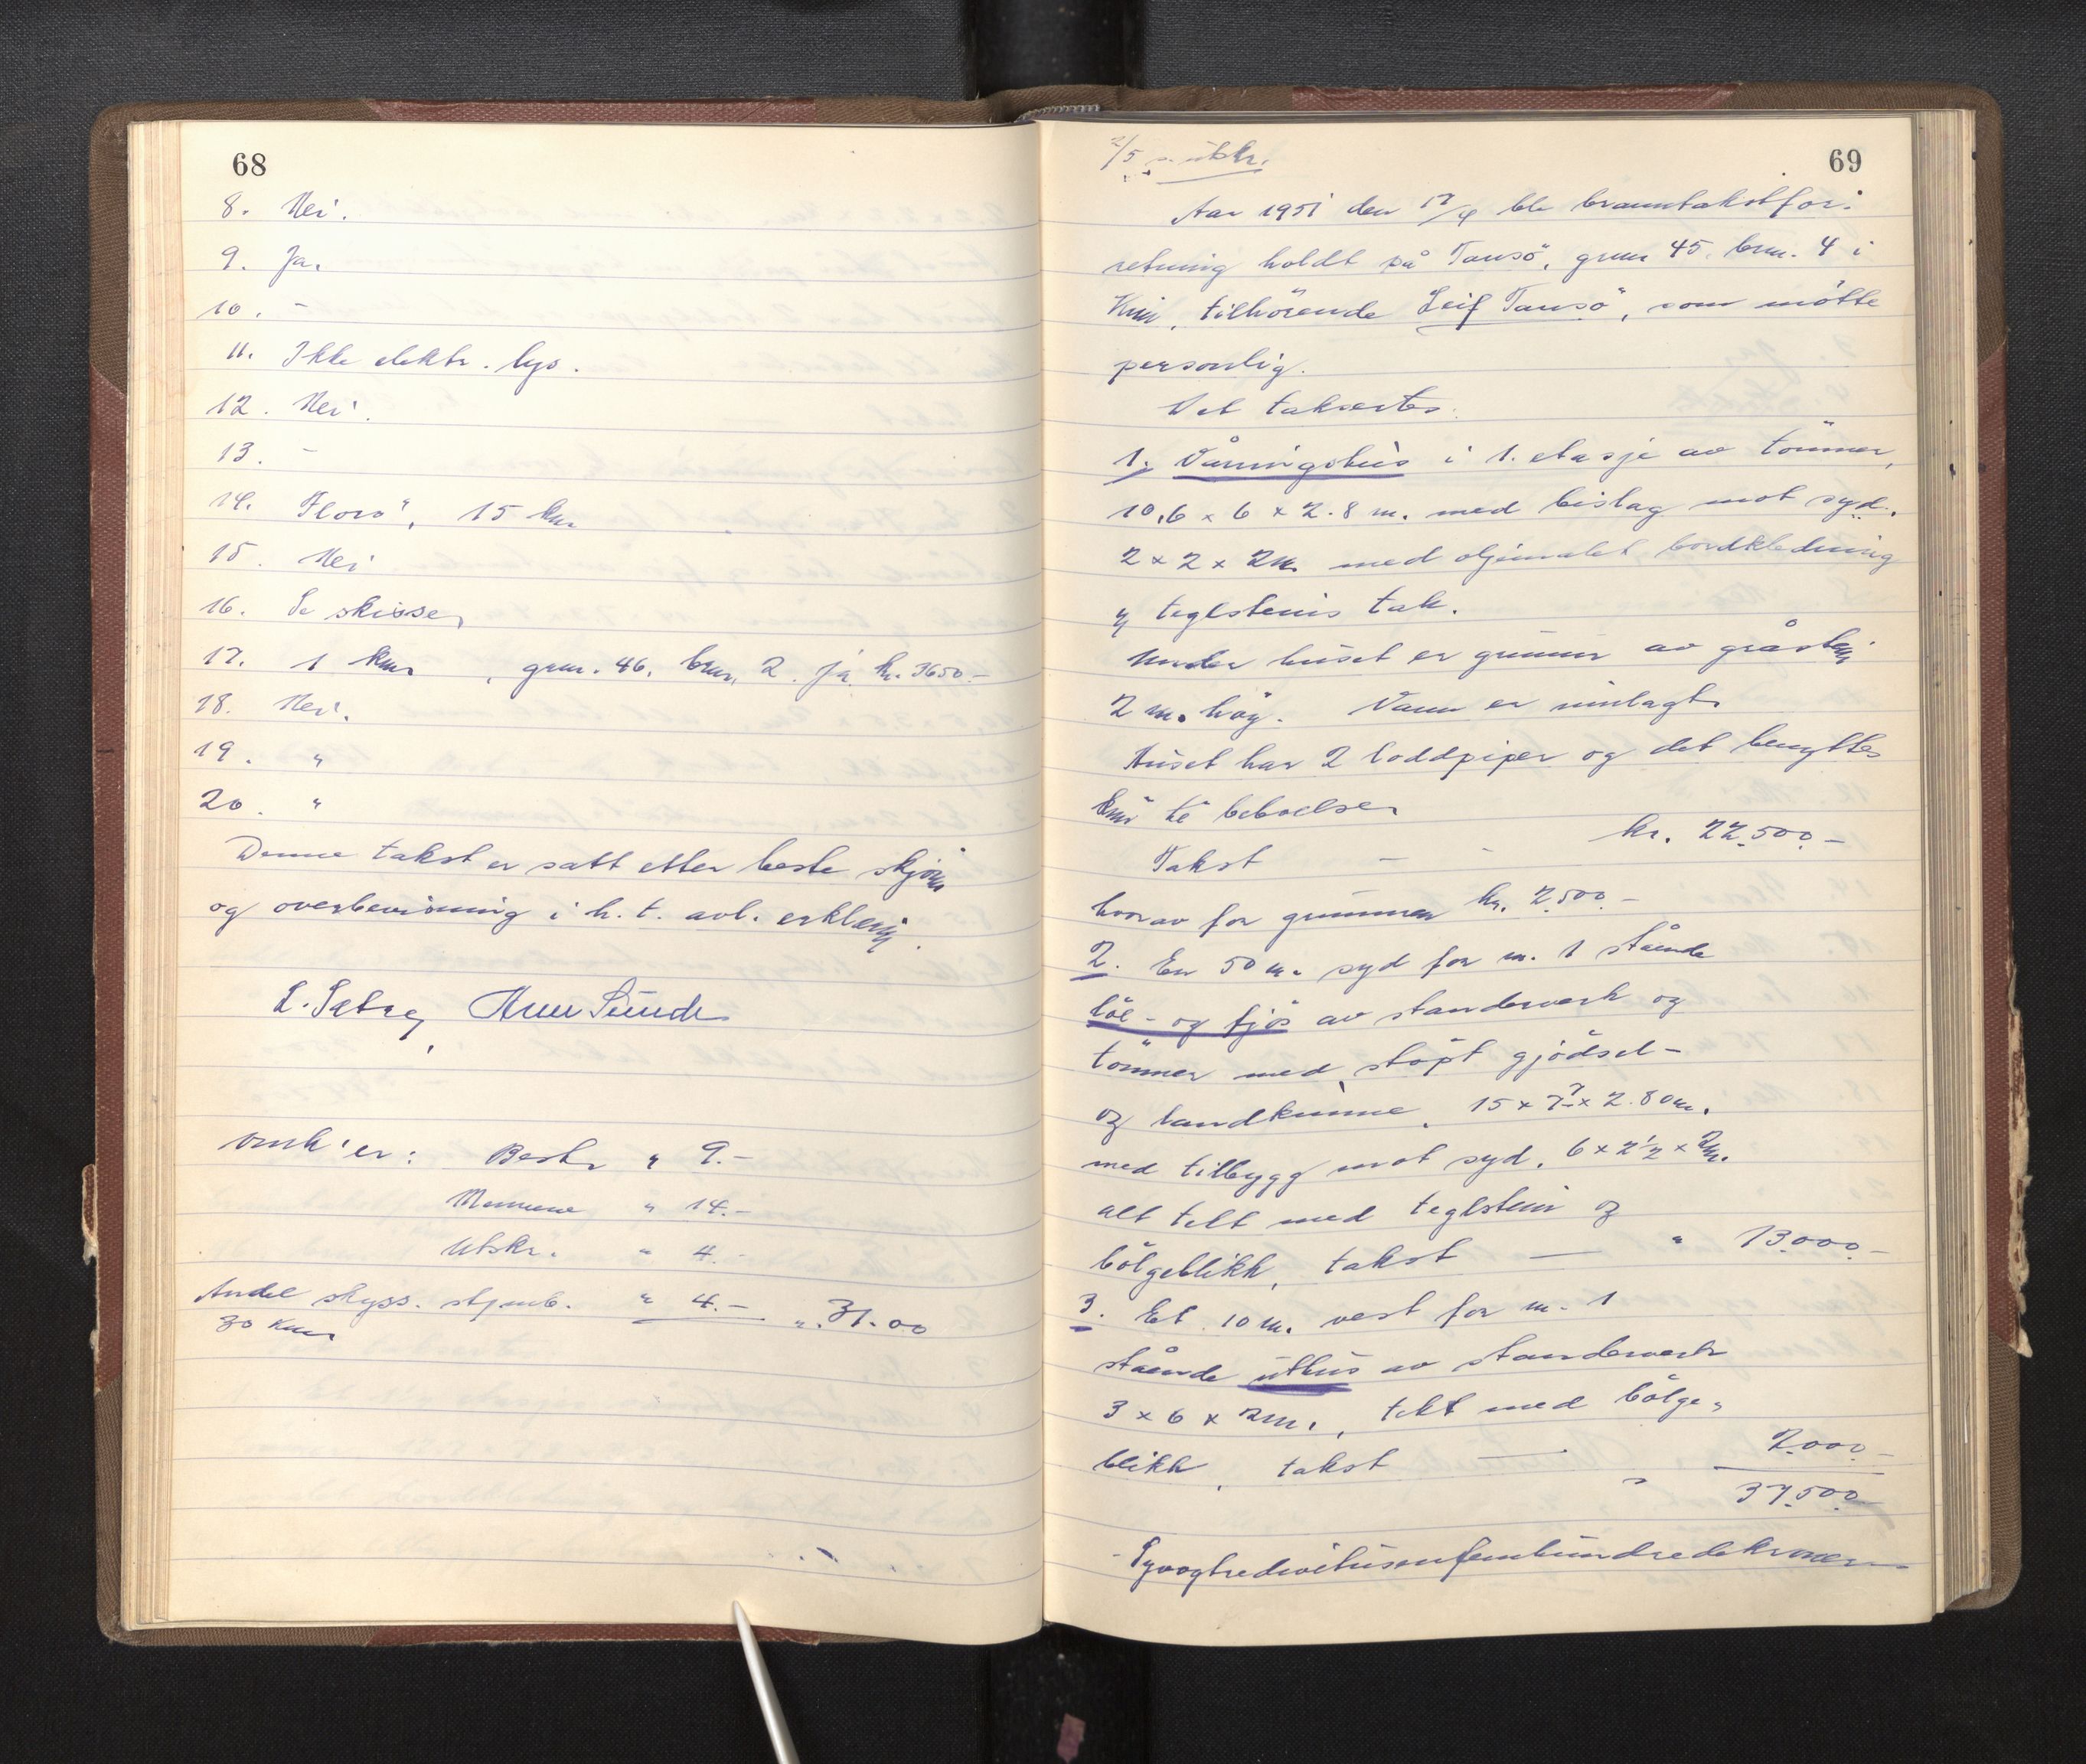 68
8. Nei.
9. Ja.
10. -
11. Ikke elektr. lys.
12. Nei.
13. -
14. Florö, 15 km
15. Nei
16. Se skisse,
17. 1 km, gnr. 46, bnr. 2. Ja kr. 3650.-
18. Nei.
19. "
20. "
Denne takst er satt etter beste skjönn
og overbevisning i h. t. avl. erklæring.
L. Sætre, Sunde
Omk'er: Bestr " 9.-
Mennene " 14.-
Utskr. " 4.-
Andel skyss. " 4.- ". 31.00
30 km
69
2/5 s. utskr.
Aar 1951 den 17/4 ble branntakstfor-
retning holdt på Tansö, gnr 45, bnr. 4 i
Kinn, tilhörende Leif Tansö, som mötte
personlig.
Det taksertes:
1. Våningshus i 1. etasje av tömmer,
10,6 x 6 x 2.8 m. med bislag mot syd.
2 x 2 x 2m. med oljemalet bordkledning
og teglsteins tak.
Under huset er grunnmur av gråstein
2 m. höy. Vann er innlagt.
Huset har 2 loddpiper og det benyttes
kun til beboelse.
Takst - - kr. 22.500.-
hvorav for grunnmur kr. 2.500.-
2. En 50 m. syd for nr. 1 stående
löe- og fjös av standerverk og
tömmer med stöpt gjödsel-
og landkumme, 15 x 7 x 2.80m.
med tilbygg mot syd, 6 x 2 1/2 x 2m.
alt tekt med teglstein og
bölgeblikk, takst — " 13.000.-
3. Et 10 m. vest for nr. 1
stående uthus av standerverk
3 x 6 x 2m., tekt med bölge-
blikk, takst — 2.000.-
" 37.500.-
- Syvogtredivetusenfemhundredekroner -